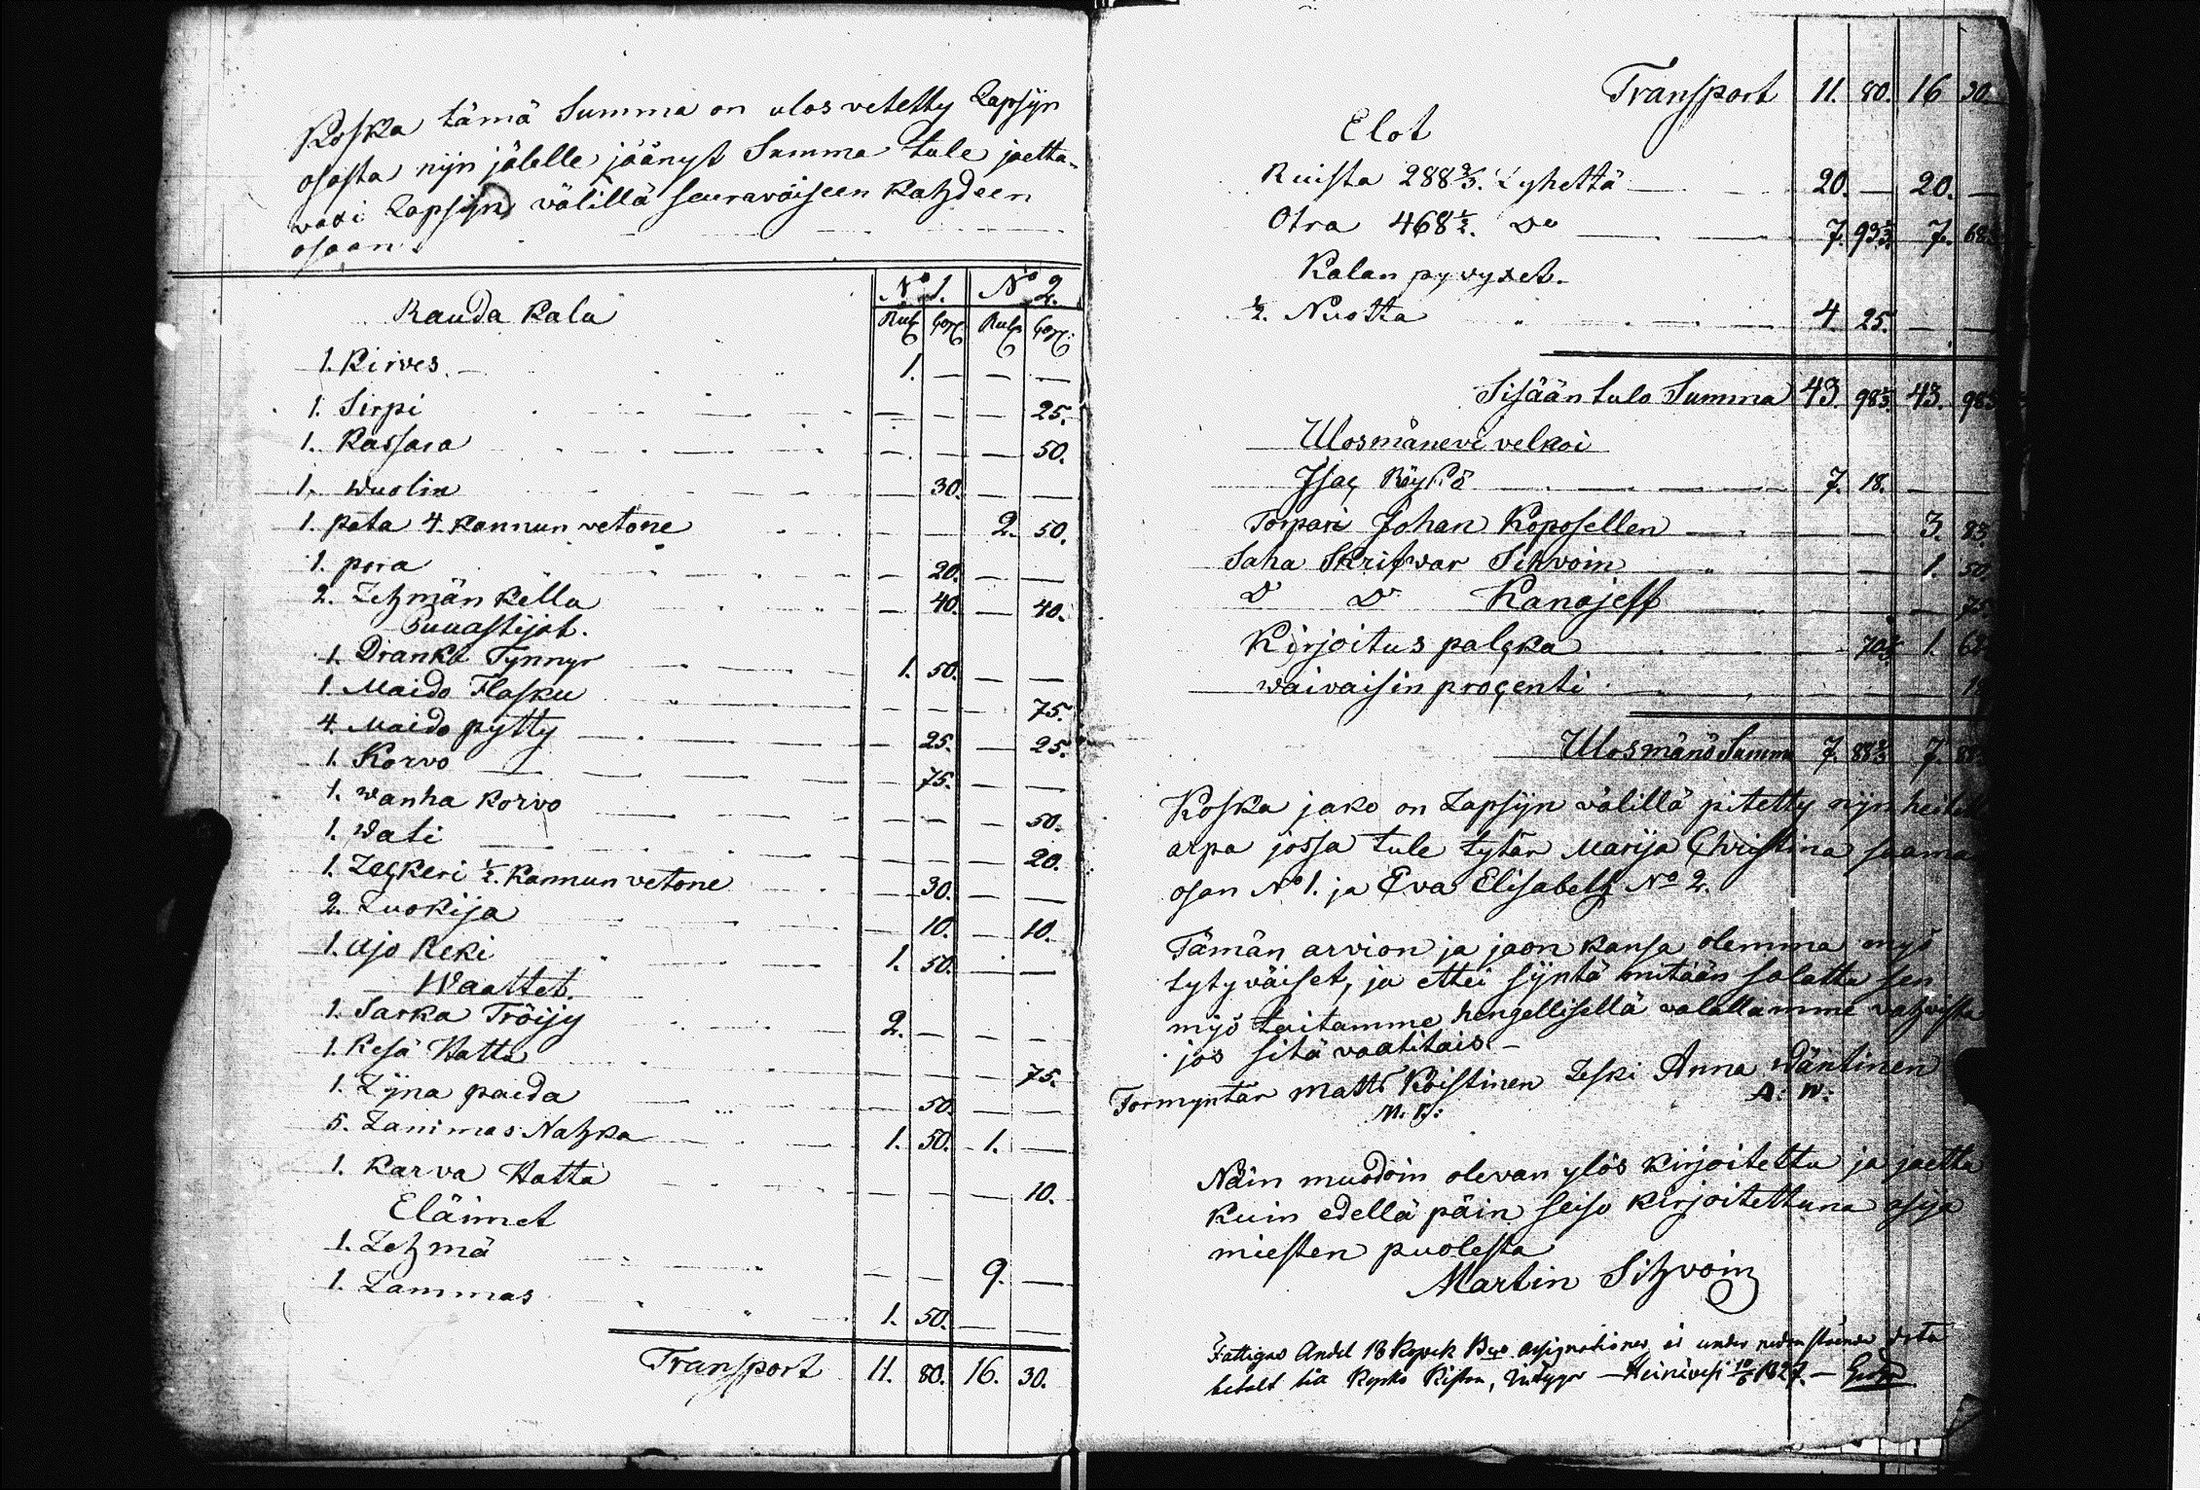 Koska tämä Summa on ulos vetetty Lapsijn
osasta nijn jälelle jäänyt Summa tule jaetta-
vaxi Lapsijn välillä seuravaiseen kahdeen
osaan.
N:o 1. N:o 2.
Rauda kalu Rub Cop Rub Cop:
1. Kirves. 1. — — —
1. Sirpi — — — 25.
1. Kassara — — — 50.
1. wuolin — 30. — —
1. pata 4. kannun vetone — — 2. 50.
1. pora — 20. — —
2. Lehmän kello — 40. — 40.
Puuastijat.
1. Drankt Tynnyr 1. 50. — —
1. Maido Flasku — — — 75.
4. Maido pytty — 25. — 25.
1. Korvo — 75. — —
1. wanha korvo — — — 50.
1. wati — — — 20.
1. Leckeri ½. kannun vetone — 30. — —
2. Luokija — 10. — 10.
1. Ajo Reki 1. 50. — —
Waattet.
1. Sarka Tröijy 2. — — —
1. Kesä Hattu — — — 75.
1. Lijna paida — 50. — —
5. Lammas Nahka 1. 50. 1. —
1. Karva Hattu — — — 10.
Eläimet
1. Lehmä — — 9. —
1. Lammas 1. 50. — —
Transport 11. 80. 16. 30.
Transport 11. 80. 16 30.
Elot
Ruista 288 ⅔. Lyhettä 20. — 20. —
Otra 468 ½. Do 7. 93⅓. 7.
Kalan pyydyxet.
½. Nuotta 4. 25. — —
Sisään tulo Summa 43. 98⅓. 43.
Ulosmänevi velkoi
Isac 7. 18. — —
Torpari Johan Koposellen — — 3. 83.
Saha Skrifwar Sihvoin — — 1. 50
D D Kanajeff — — — 75
Kirjoitus palcka — 70⅓ 1.
waivaisin procenti
Ulosmänö Summa 7. 88⅓ 7.
Koska jako on Lapsijn välillä pitetty nijn
arpa jossa tule tytär Marija Christina saama
osan N:o 1. ja Eva Elisabeth N:o 2.
Tämän arvion ja jaon kansa olemma myö
tytyväiset, ja ettei sijntä mitään salattu sen
myö taitamme hengellisellä valallamme vahvista
jos sitä vaatitais —
Formyntär Matts Koistinen Leski Anna Wäntinen
M: K: A: W:
Näin muodoin olevan ylös kirjoitettu ja jaettu
kuin edellä päin seiso kirjoitettuna asija
miesten puolesta
Martin Sihvoin
Fattigas Andel 18 Kopek Bco assignationer, är under nedanstående dato
betalt till Kyrko Kistan, intygar — Heinävesi 1827. —